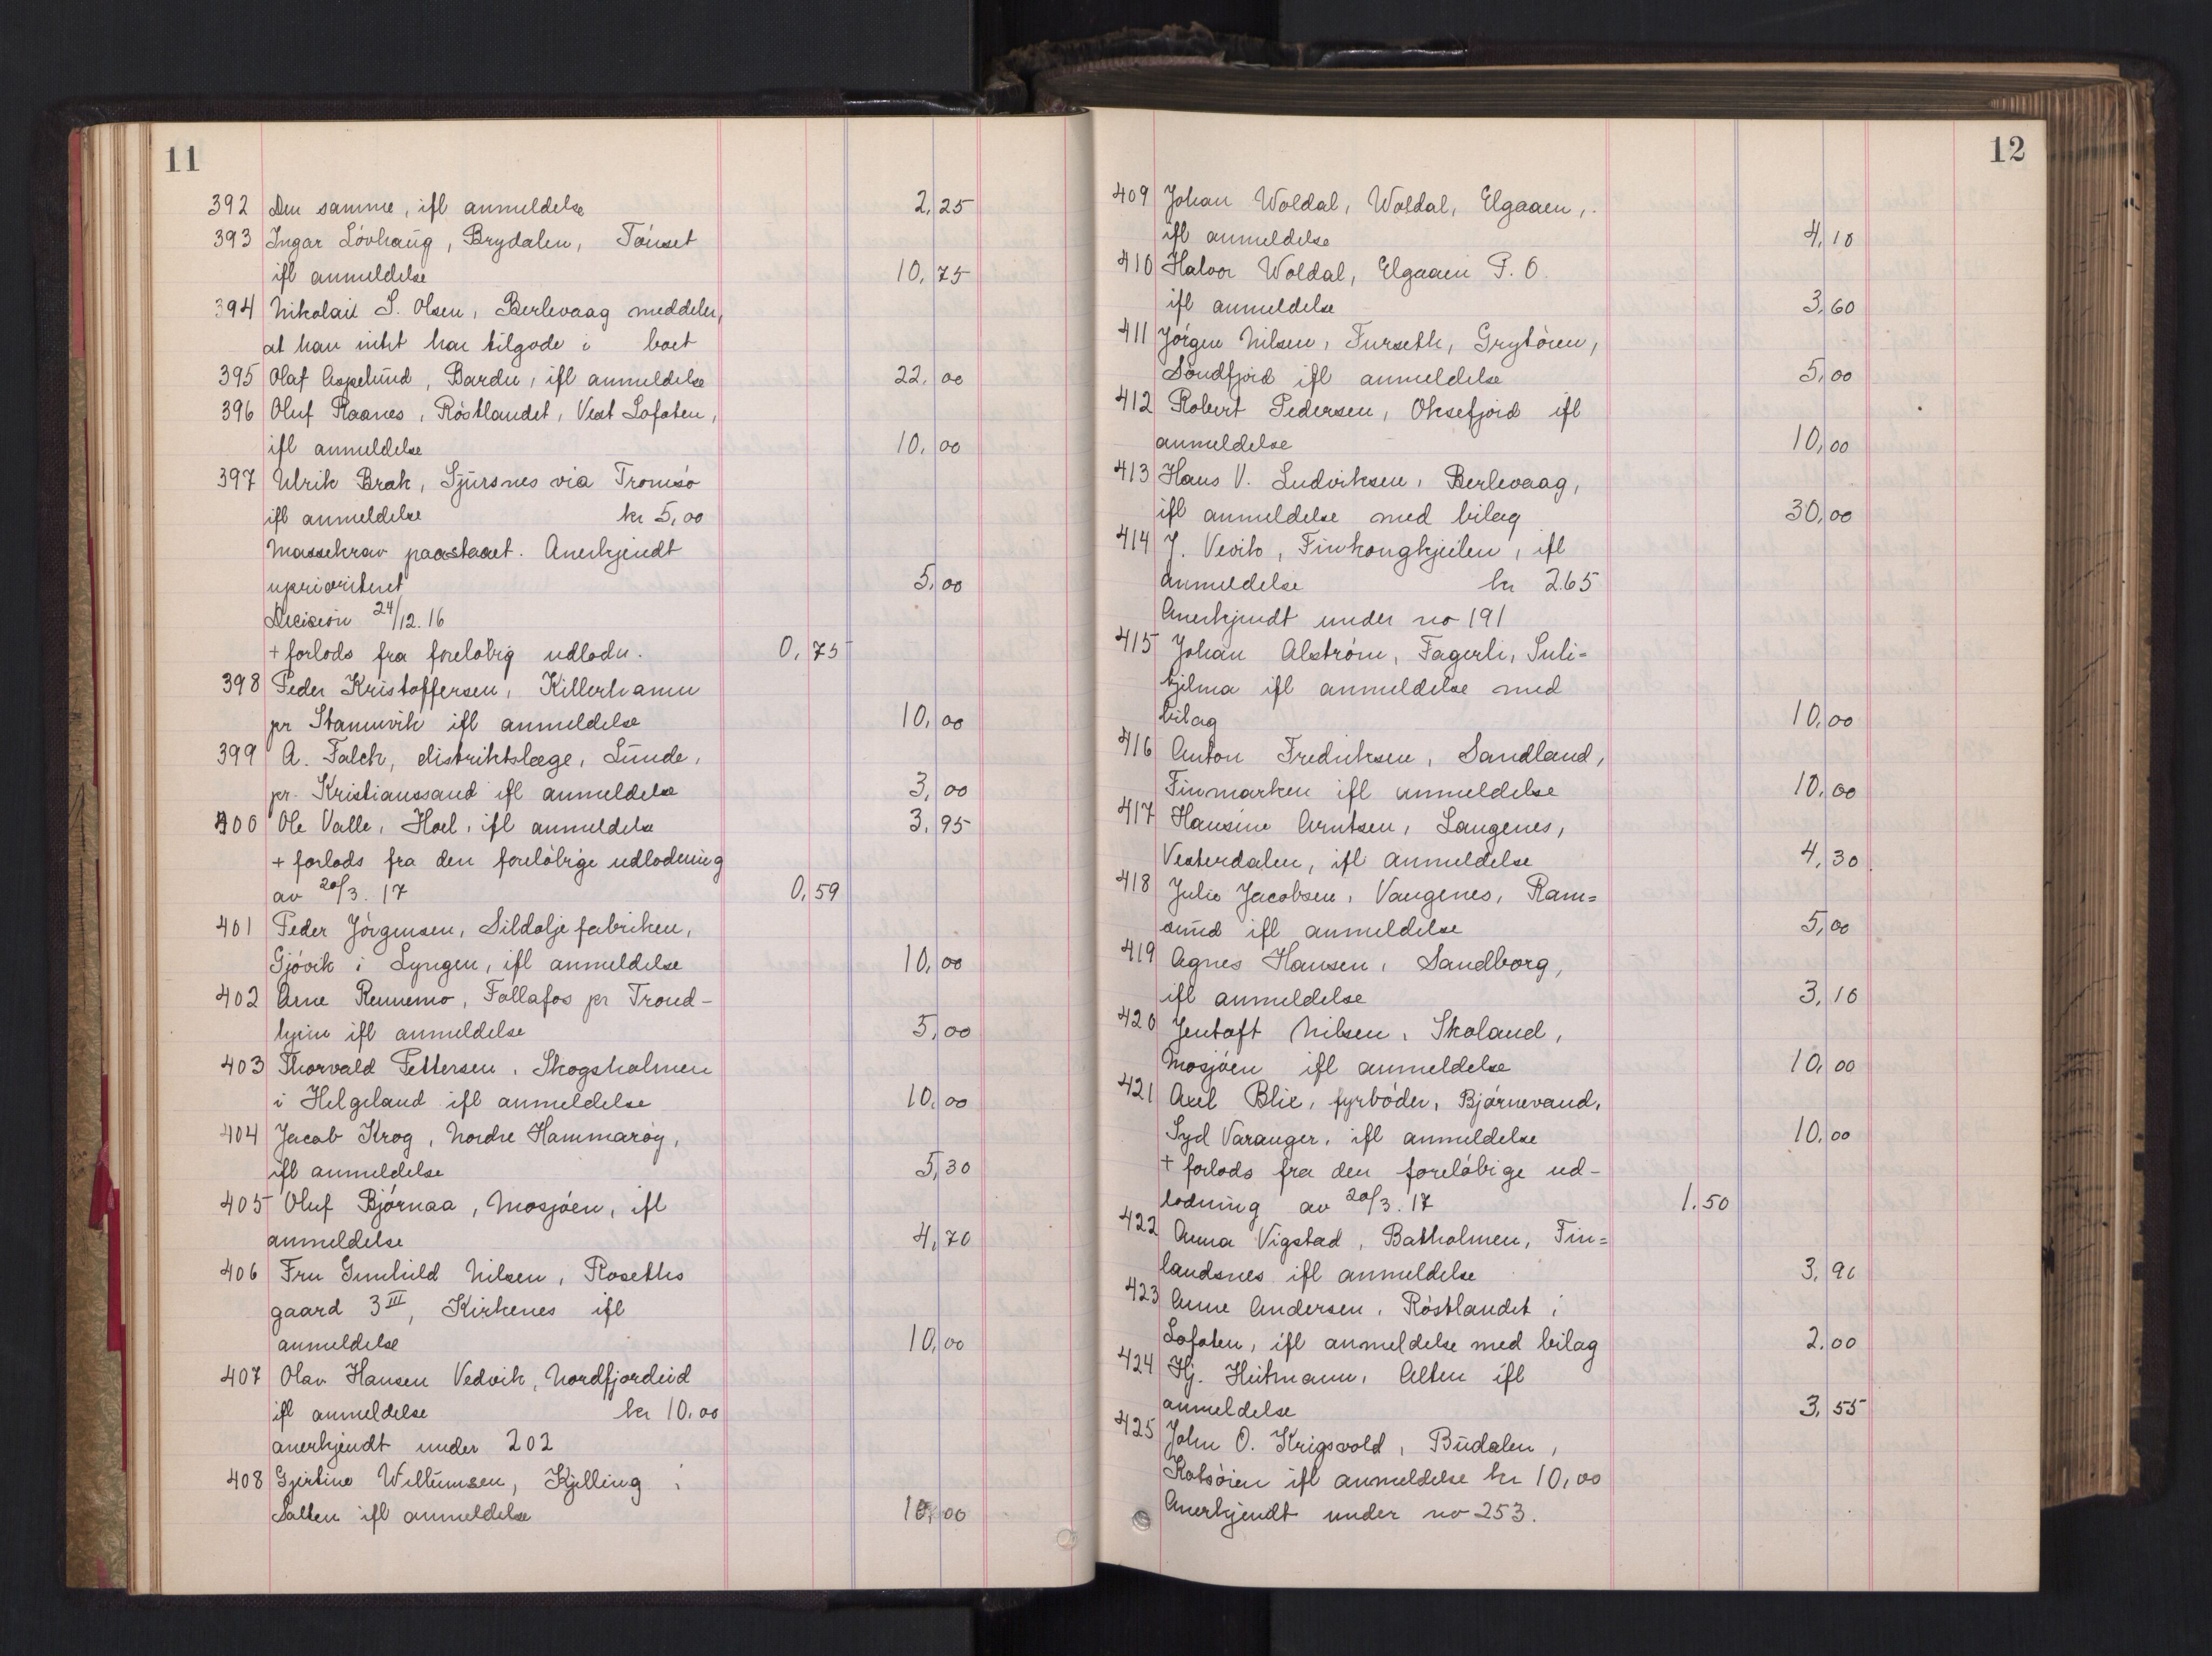 11
392 Den samme, ifl anmeldelse 2,25
393 Ingar Lövhaug, Brydalen, Tönset
ifl anmeldelse 10,75
394 Nikolai S. Olsen, Berlevaag meddeler,
at han intet har tilgode i boet
395 Olaf Aspelund, Bardu, ifl anmeldelse 22,00
396 Oluf Raanes, Röstlandet, Vest Lofoten,
ifl anmeldelse 10,00
397 Ulrik Brak, Sjursnes via Tromsö
ifl anmeldelse kr 5,00
Massekrav paastaaet. Anerkjendt
uprioriteret 5,00
Decision 24/12.16
+ forlods fra forelöbig udlodn. 0,75
398 Peder Kristoffersen, Killerhamn
pr Stamnvik ifl anmeldelse 10,00
399 A. Falch, distriktslæge, Lunde,
pr. Kristianssand ifl anmeldelse 3,00
400 Ole Valle, Hoel, ifl anmeldelse 3,95
+ forlods fra den forelöbige udlodning
av 20/3.17 0,59
401 Peder Jörgensen, Sildoljefabriken,
Gjövik i Lyngen, ifl anmeldelse 10,00
402 Arne Rennemo, Follafos pr Trond-
hjem ifl anmeldelse 5,00
403 Thorvald Pettersen, Skogsholmen
i Helgeland ifl anmeldelse 10,00
404 Jacob Krog, Nordre Hammaröy,
ifl anmeldelse 5,30
405 Oluf Björnaa, Mosjöen, ifl
anmeldelse 4,70
406 Fru Gunhild Nilsen, Roseths
gaard 3III, Kirkenes ifl
anmeldelse 10,00
407 Olav Hansen Vedvik, Nordfjordeid
ifl anmeldelse kr 10,00
anerkjendt under 202
408 Gjertine Willumsen, Kjelling i
Salten ifl anmeldelse 10,00
12
409 Johan Woldal, Woldal, Elgaaen,
ifl anmeldelse 4,10
410 Halvor Woldal, Elgaaen P.O.
ifl anmeldelse 3,60
411 Jörgen Nilsen, Furseth, Grytören,
Söndfjord ifl anmeldelse 5,00
412 Robert Pedersen, Oksefjord ifl
anmeldelse 10,00
413 Hans V. Ludviksen, Berlevaag,
ifl anmeldelse med bilag 30,00
414 J. Vevik, Finkongkjeilen, ifl
anmeldelse kr 2.65
Anerkjendt under no 191
415 Johan Alström, Fagerli, Suli=
tjelma ifl anmeldelse med
bilag 10,00
416 Anton Fredriksen, Sandland,
Finmarken ifl anmeldelse 10,00
417 Hansine Arntsen, Langenes,
Vesterdalen, ifl anmeldelse 4,30
418 Julie Jacobsen, Vaugenes, Ram=
sund ifl anmeldelse 5,00
419 Agnes Hansen, Sandborg,
ifl anmeldelse 3,10
420 Jentoft Nilsen, Skoland,
Mosjöen ifl anmeldelse 10,00
421 Axel Blie, fyrböder, Björnevand,
Syd Varanger, ifl anmeldelse 10,00
+ forlods fra den forelöbige ud-
lodning av 20/3.17 1.50
422 Anna Vigstad, Batholmen, Fin=
landsnes ifl anmeldelse 3,90
423 Anne Andersen, Röstlandet i
Lofoten, ifl anmeldelse med bilag 2.00
424 Hj. Heitmann, Alten ifl
anmeldelse 3,55
425 John O. Krigsvold, Budalen,
Kotsöien ifl anmeldelse kr 10,00
Anerkjendt under no 253.